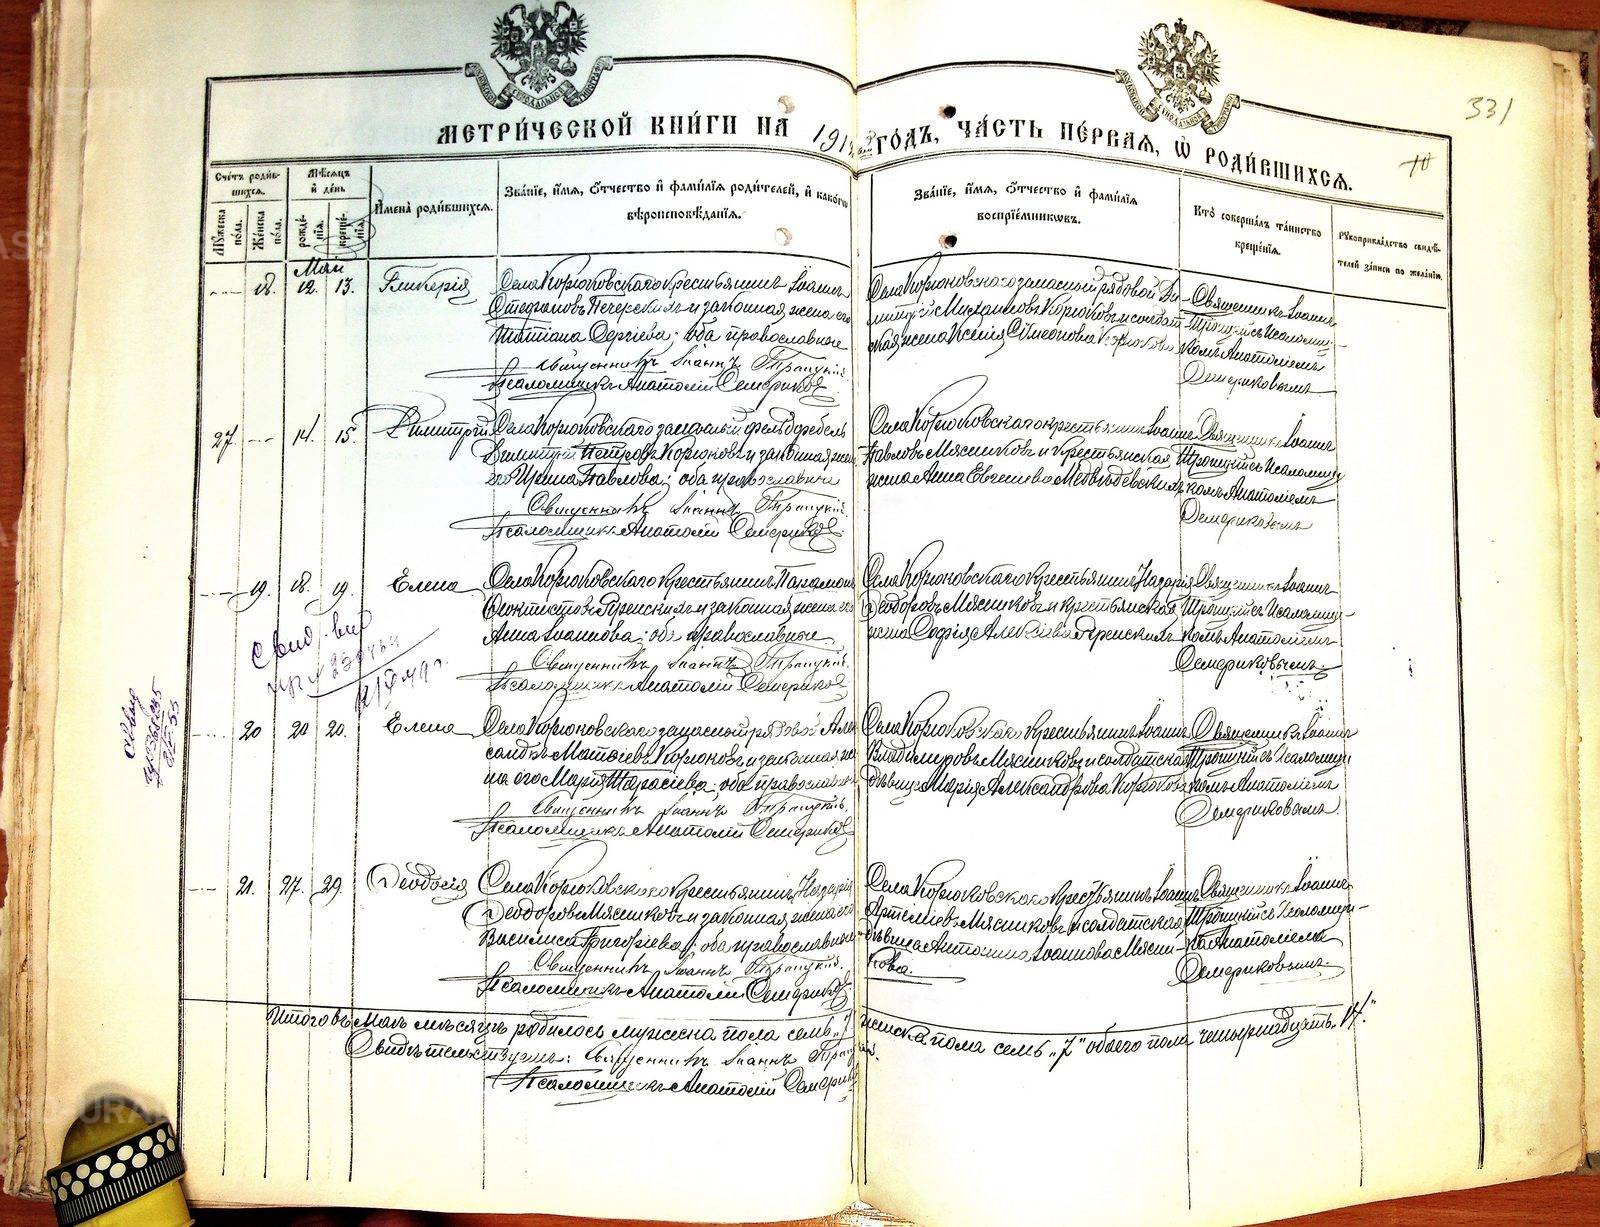 331
МЕТРИ́ЧЕСКОЙ КНИ́ГИ НА 191 ГО́ДЪ, ЧА́СТЬ ПЕ́РВАЯ, Ѡ РОДИ́ВШИХСЯ.
10
Сче́тъ роди́вшихся.
Му́жеска по́ла.
Же́нска по́ла.
Мѣ́сяцъ и де́нь
рожде́нія.
креще́нія.
Имена̀ роди́вшихся.
Зва́ніе, и́мя, о́тчество и фами́лія роди́телей, и како́гѡ
вѣроисповѣ́данія.
Зва́ніе, и́мя, о́тчество и фами́лія
воспріе́мникѡвъ.
Кто̀ соверша́лъ та́инство
креще́нія.
Рукоприкла́дство свидѣ́-
телей за́писи по жела́нію.
Май
18. 12. 13. Гликерія
Села Корюковскаго крестьянинъ Іоаннъ
Стефановъ Печерскихъ и законная жена его
Татіана Сергіева; оба православные
Священникъ Іоаннъ Троицкій.
Псаломщикъ Анатолій Семериков
Села Корюковскаго запасный рядовой Ди-
митрій Михаиловъ Корюковъ и солдат-
ская жена Ксенія Сѵмеонова Корюкова
Священникъ Іоаннъ
Троицкій съ Псаломщи-
комъ Анатоліемъ
Семериковымъ
27. 14. 15. Димитрій
Села Корюковскаго запасный фельдфебель
Димитрій Петровъ Корюковъ и законная жена
его Ирина Павлова; оба православные
Священникъ Іоаннъ Троицкій.
Псаломщикъ Анатолій Семериков
Села Корюковскаго крестьянинъ Іоаннъ
Павловъ Мясниковъ и крестьянская
жена Анна Евгеніева Медвѣдевскихъ
Священникъ Іоаннъ
Троицкій съ Псаломщи
комъ Анатоліемъ
Семериковымъ
19. 18. 19. Елена
Села Корюковскаго крестьянинъ Парамонъ
Ѳеоктистовъ и законная жена его
Анна Іоаннова; оба православные
Священникъ Іоаннъ Троицкій.
Псаломщикъ Анатолій Семериков
Села Корюковскаго крестьянинъ Назарій
Ѳеодоровъ Мясниковъ и крестьянская
жена Софія Алексіева
Священникъ Іоаннъ
Троицкій съ Псаломщи-
комъ Анатоліемъ
Семериковымъ.
Свид. выд
20 20 20. Елена
Села Корюковскаго запасной рядовой Але-
Матѳіевъ Корюковъ и законная же-
на его Марія Тарасіева; оба православные
Священникъ Іоаннъ Троицкій.
Псаломщикъ Анатолій Семериков
Села Корюковскаго крестьянинъ Іоаннъ
Владиміровъ Мясниковъ и солдатская
дѣвица Марія Александрова Корюкова
Священникъ Іоаннъ
Троицкій съ Псаломщи
комъ Анатоліемъ
Семериковымъ.
21. 27. 29. Ѳеодосія
Села Корюковскаго крестьянинъ Назарій
Ѳеодоровъ Мясниковъ и законная жена его
Василиса Григоріева; оба православные
Священникъ Іоаннъ Троицкій.
Псаломщикъ Анатолій Семериков
Села Корюковскаго крестьянинъ Іоаннъ
Артеміевъ Мясниковъ и солдатская
дѣвица Антонина Іоаннова Мясни-
кова.
Священникъ Іоаннъ
Троицкій съ Псаломщи-
комъ Анатоліемъ
Семериковымъ.
Итого въ Маѣ мѣсяцѣ родилось мужеска пола семь „7“ женска пола семь „7“ обоего пола четырнадцать „14.“
Свидѣтельствуемъ: Священникъ Іоаннъ Троицкій.
Псаломщикъ Анатолій Семериков